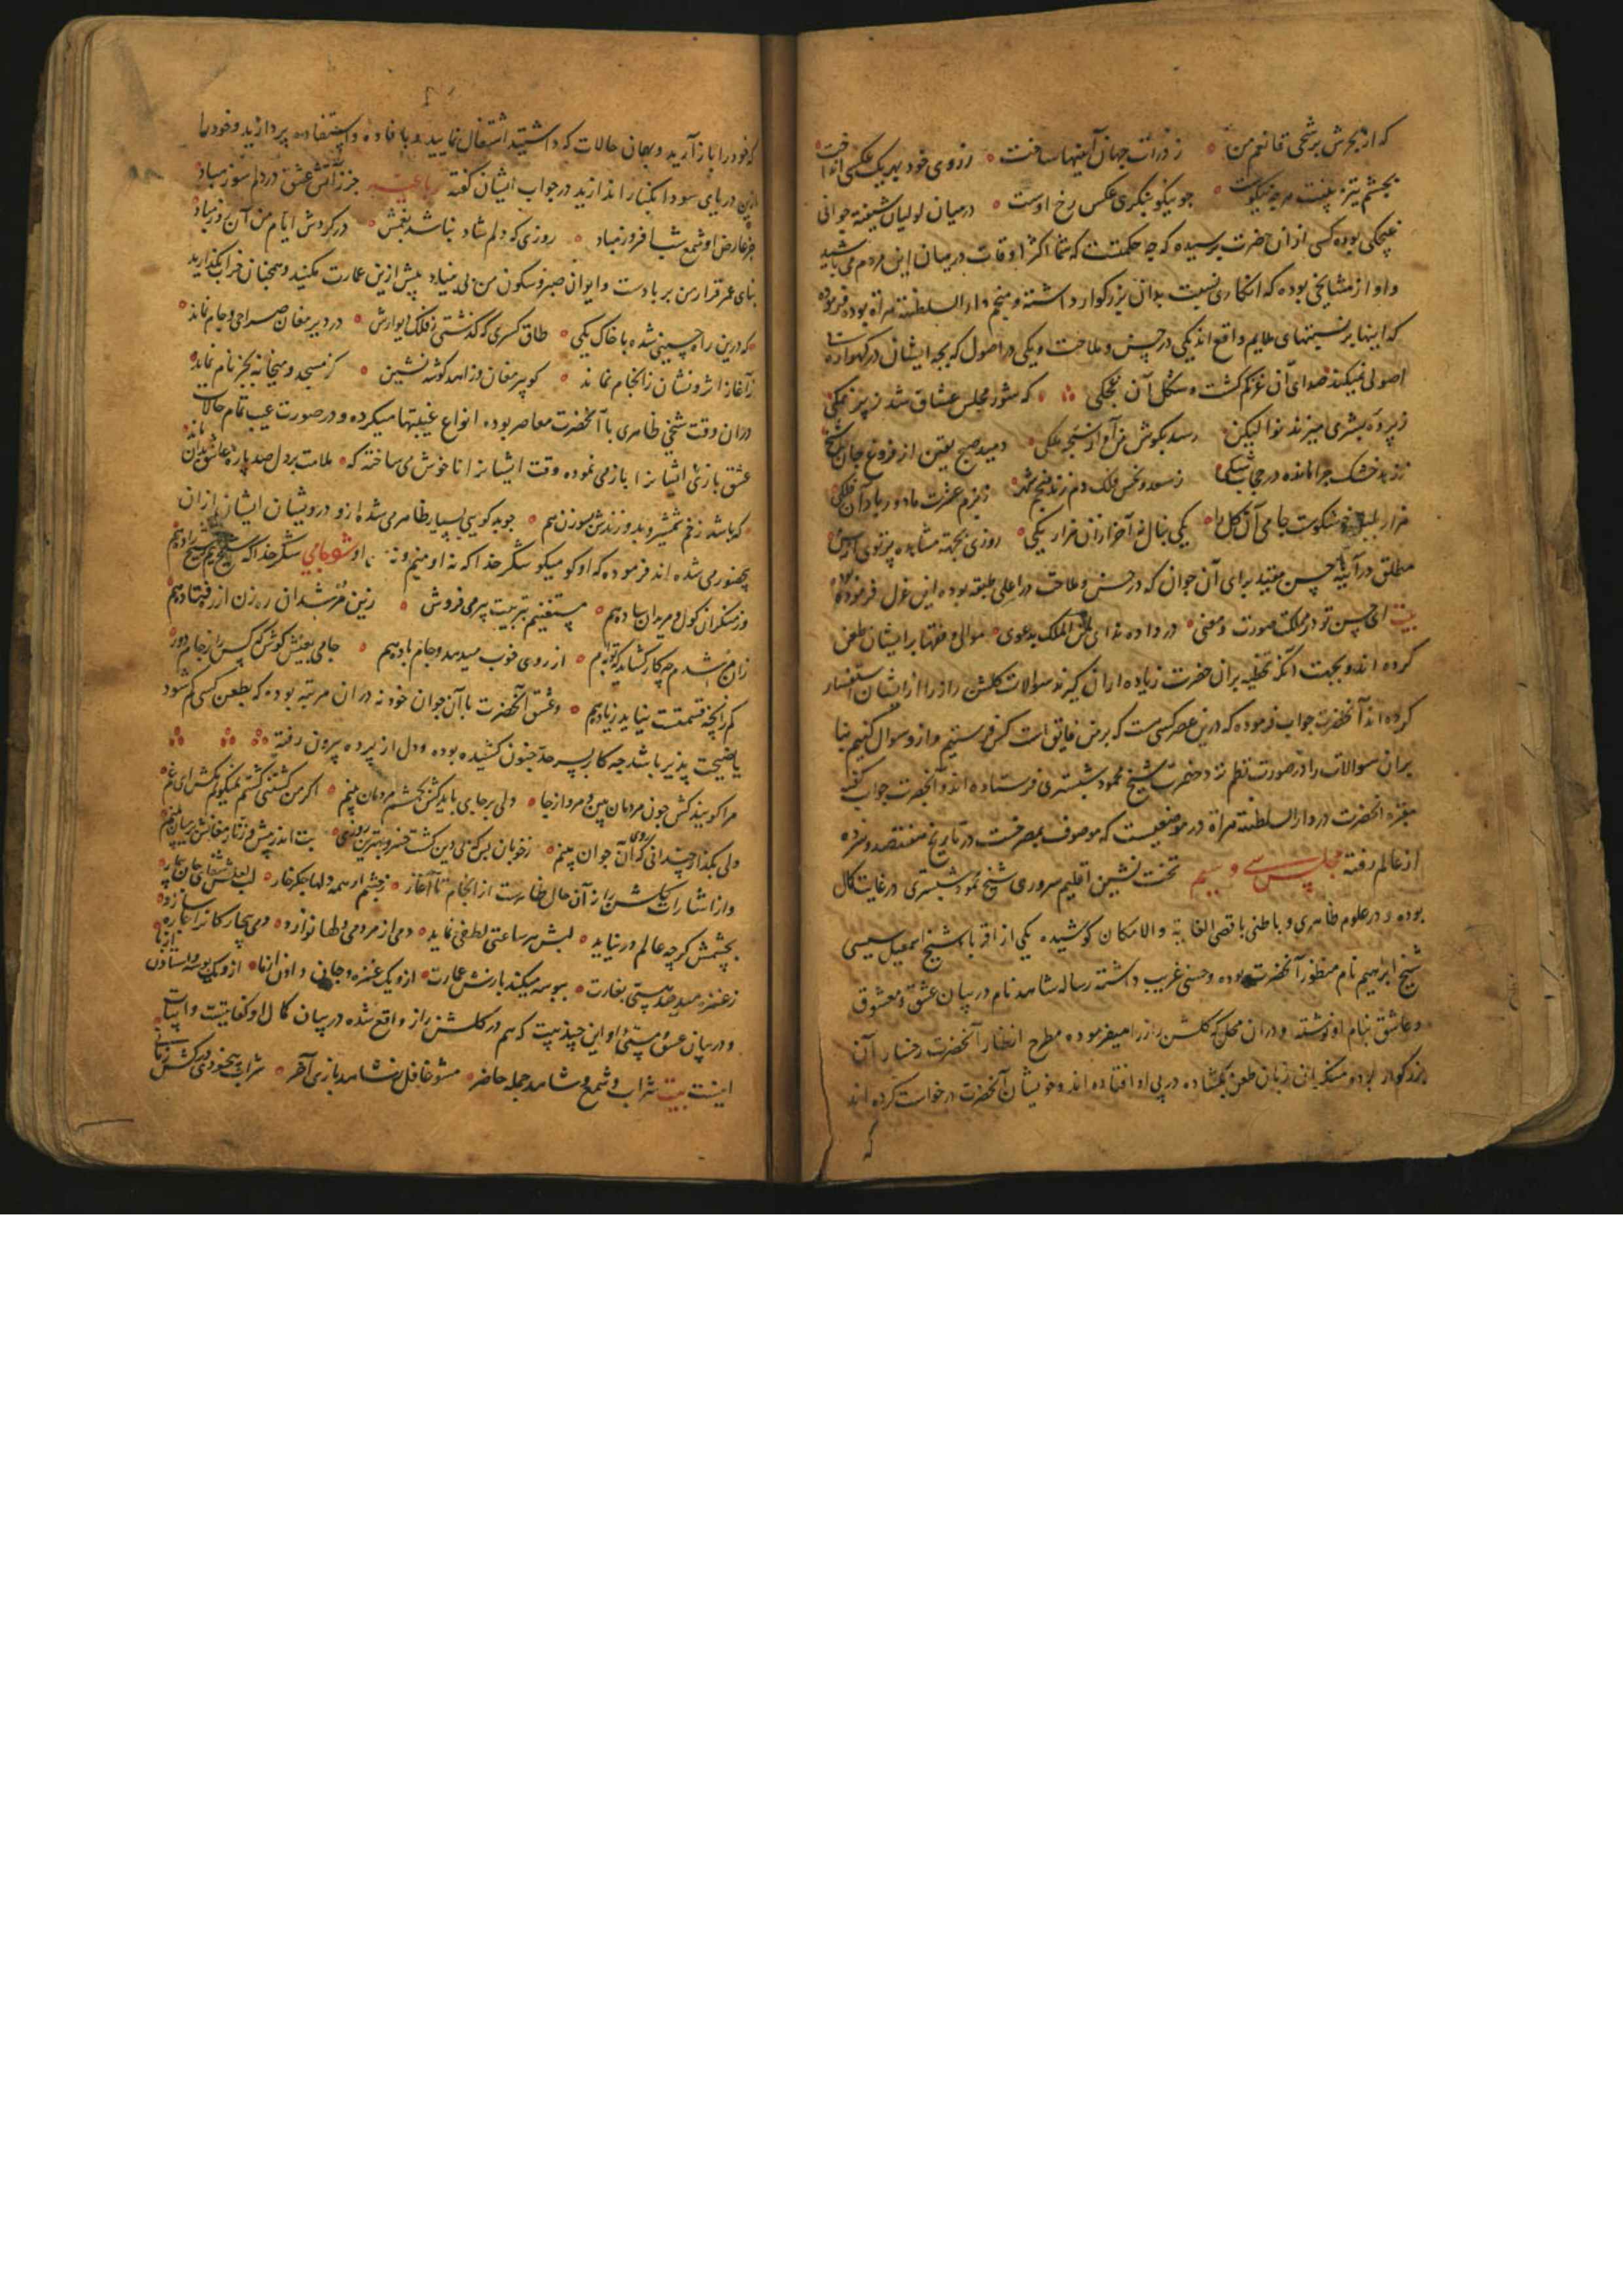 که از بحرش برشحی قانعم من ز ذرات جهان آیینها ساخت ز روی خود بهر یک عکس انداخت
بچشم تیز بینت هر چه نیکوست جو نیکو بنگری عکس رخ اوست در میان لولیان شیفته جوانی
غیچکی بوده کسی از ان حضرت پرسیده که چه حکمتست که شما اکثر اوقات در میان این مردم می باشید
و او از مشایخی بوده که انکاری نسبت بدان بزرگوار داشته و منجم دار السلطنة هراة بوده فرموده
که اینها بر نسبتهای ملایم واقع اند یکی در حسن و ملاحت و یکی در اصول که بچه ایشان در کهواره
اصولی میکند صدای آن و شکل آن غچکی که شور مجلس عشاق شد ز پر نمکی
ز پرده بشری میزند نوا لیکن رسد بکوش من آواز ملکی دمید صبح یقین از فروغ جان
ز زهد خشک چرا مانده در حجاب شکی ز سعد و نحس فلک دم زند منجم شهر ز بزم عشرت ما دور باد آن فلکی
هزار بلبل جامی آن گل را یکی بنال آخر ازان هزار یکی روزی بجهة مشاهده پرتوی از حسن
مطلق در آیینه حسن مقید برای آن جوان که در حسن و ملاحت در اعلی طبقه بوده این غزل فرموده
بیت ای حسن تو در مملکت صورت و معنی در داده ندای لمن الملک بدعوی موالی و فقها بر ایشان طعن
کرده اند و بجهت آنکه تخطیه بران حضرت زیاده ازان کیرند سوالات کلشن راز را از ایشان استفسار
کرده اند آنحضرت جواب فرموده که درین عصر کسی ست که بر من فایق است کس فرستیم و ازو سوال کنیم بنا
بران سوالات را در صورت نظم نزد حضرت شیخ محمود شبستری فرستاده اند و آنحضرت جواب گفته
مقبره انحضرت در دار السلطنة هراة در موضعیست که موصوف بمصرخست در تاریخ هفتصد و نزده
از عالم رفته مجلس سی و سیم تخت نشین اقلیم سروری شیخ محمود شبستری در غایت کمال
بوده و در علوم ظاهری و باطنی باقصی الغایة و الامکان کوشیده یکی از اقربا شیخ اسمعیل سیسی
شیخ ابراهیم نام منظور آنحضرت بوده و حسنی غریب داشته رساله شاهد نام در بیان عشق و معشوق
و عاشق بنام او نوشته و دران محل که کلشن راز را میفرموده مطرح انظار آنحضرت رخسار آن
بزرگوار بوده منکرانی زبان طعن بکشاده در پی او افتاده اند و خویشان آنحضرت درخواست کرده اند
که
که خود را باز آرید و بهمان حالات که داشتید اشتغال نمایید و بافاده و استفاده پردازید و خود را
ازین دریای سودا بکنار اندازید در جواب ایشان کفته رباعیه جز آتش عشق در دلم سوز مباد
جز عارض او شمع شب افروز مباد روزی که دلم شاد نباشد بغمش در کردش ایام من آن روز مباد
بنای عمر قرار من بر بادست و ایوان صبر و سکون من بی بنیاد پیش ازین عمارت مکنید و همچنان خراب بگذارید
که درین راه چینی شده با خاک یکی طاق کسری که کذشتی ز فلک دیوارش در دیر مغان صراحی و جام نماند
ز آغاز اثر و نشان ز انجام نماند کو پیر مغان و زاهد کوشه نشین کز مسجد و میخانه بجز نام نماند
دران وقت شیخی ظاهری با آنحضرت معاصر بوده انواع غیبتها میکرده و در صورت عیب تمام حالات
عشق بازی ایشانرا باز می نموده و وقت ایشانرا ناخوش می ساخته که ملامت بر دل صد پاره عاشق بدان ماند
که باشد زخم شمشیر و بدوزندش بسوزن هم جو بدکویی بسیار ظاهر می شده ازو درویشان ایشان ازان
بحضور می شده اند فرموده که او کو میکو شکر خدا که نه او منیم و نه او جامی شکر خدا که شیخ نیم شیخ زاده هم
وز منکران کول و مریدان ساده هم مستغنیم بتربیت پیر می فروش زین مرشدان ره زن از ره فتاده هم
از روی خوب میدهد و جام باده هم جامی بعیش کوش که کس را ز جام دور
کم زانچه قسمتست نیاید زیاده هم و عشق آنحضرت با آن جوان خود نه دران مرتبه بوده که بطعن کسی کم شود
یا نصیحت پذیر باشد چه کار بسر حد جنون کشیده بوده و دل از پرده بیرون رفته
مرا کویند کش چون مردمان بین و مرو از جا ولی بر جای باید کش بچشم مردمان بینم اگر من کشتنی کشتم
ولی بگذار چندانی که روی آن جوان بینم ز خوبان بس که بی دین کشت
و از اشارات کلشن راز آن حال ظاهرست از انجام تا آغاز ز چشم او همه دلها جکر خوار لب لعلش شفای جان بیمار
بچشمش کرچه عالم در نیاید لبش هر ساعتی لطفی نماید دمی از مردمی دلها نوازد دمی بیچارکانرا چاره سازد
ز غمزه میدهد هستی بغارت ببوسه میکند بازش عمارت ازو یک غمزه و جانی دادن از ما ازو یک بوسه و استادن از ما
و در بیان عشق و مستی او این چند بیت که هم در کلشن راز واقع شده در بیان کمال او کفایتیست و ابیات
اینست بیت شراب و شمع و شاهد جمله حاضر مشو غافل ز شاهد بازی آخر شراب بیخودی در کش زمانی